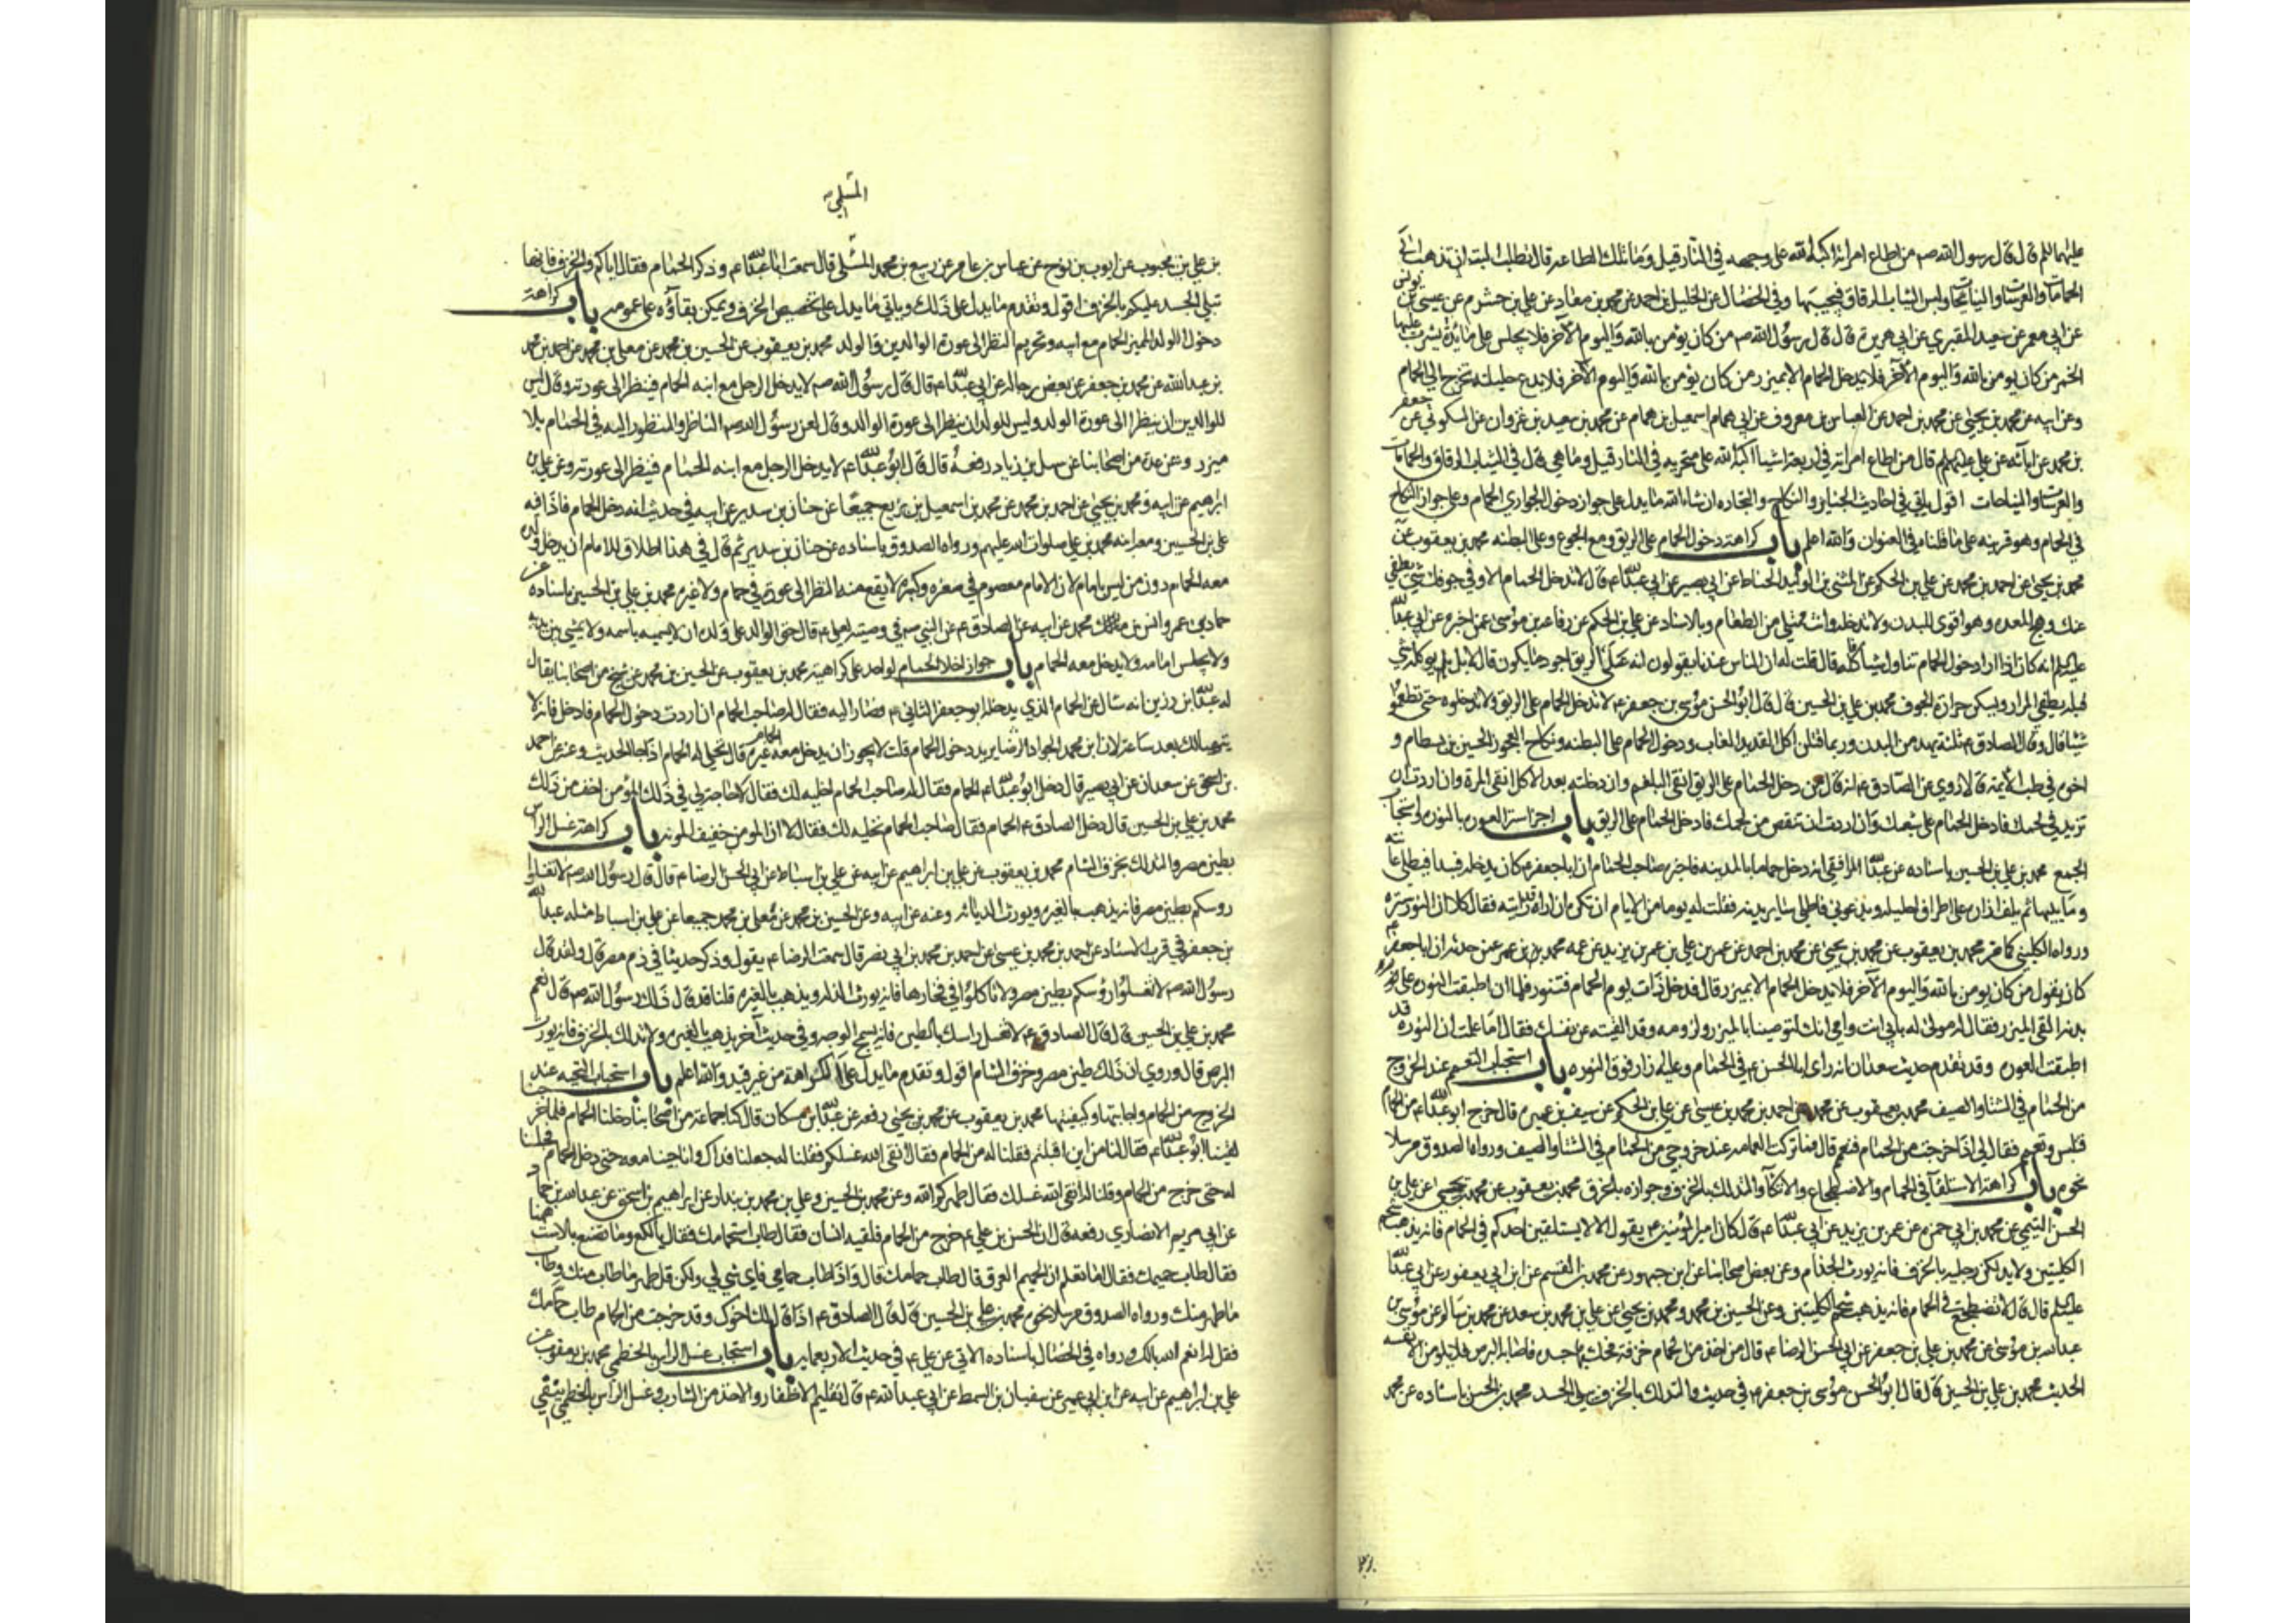 عليهما السلام قال قال رسول الله صم من اطاع امراته اكبه الله على وجهه في النار قيل وما تلك الطاعة قال تطلب اليه ان تذهب الى
الحمامات والعرسات والنياحات ولبس الثياب الرقاق فيجيبها وفي الخصال عن الخليل بن احمد عن محمد بن معاذ عن علي بن خشرم عن عيسى بن يونس
عن ابي معمر عن سعيد المقبري عن ابي هريرة قال قال رسول الله صم من كان يؤمن بالله واليوم الآخر فلا يجلس على مائدة يشرب عليها
الخمر من كان يؤمن بالله واليوم الآخر فلا يدخل الحمام الا بميزر من كان يؤمن بالله واليوم الآخر فلا يدع حليلته تخرج الى الحمام
وعن ابيه عن محمد بن يحيى عن محمد بن احمد عن العباس بن معروف عن ابي همام اسمعيل بن همام عن محمد بن سعيد بن غزوان عن السكوني عن جعفر
بن محمد عن ابائه عن علي عليهم السلام قال من اطاع امراته في اربعة اشياء اكبه الله على منخريه في النار قيل وما هي قال في الثياب الرقاق والحمامات
والعرسات والنياحات اقول ياتي في احاديث الجنايز والنكاح والتجارة ان شاء الله ما يدل على جواز دخول الجواري الحمام وعلى جواز النكاح
في الحمام وهو قرينة على ما قلناه في العنوان والله اعلم باب كراهة دخول الحمام على الريق ومع الجوع وعلى البطنة محمد بن يعقوب عن
محمد بن يحيى عن احمد بن محمد عن علي بن الحكم عن المثنى بن الوليد الحناط عن ابي بصير عن ابي عبد الله ع قال لا تدخل الحمام الا وفي جوفك شيء يطفي
عنك وهج المعدة وهو اقوى للبدن ولا تدخله وانت ممتلي من الطعام وبالاسناد عن علي بن الحكم عن رفاعة بن موسى عمن اخبره عن ابي عبد الله
عليه السلام انه كان اذا اراد دخول الحمام تناول شيئا فاكله قال قلت له ان الناس عندنا يقولون انه على الريق اجود ما يكون قال لا بل يؤكل شيء
قبله يطفي المرار ويسكن حرارة الجوف محمد بن علي بن الحسين قال قال ابو الحسن موسى بن جعفر ع لا تدخل الحمام على الريق ولا تدخلوه حتى تطعموا
شيئا قال وقال الصادق ع ثلثة يهدمن البدن وربما قتلن اكل القديد الغاب ودخول الحمام على البطنة ونكاح العجوز الحسين بن بسطام و
اخوه في طب الائمة قالا روي عن الصادق ع انه قال من دخل الحمام على الريق انقى البلغم وان دخلته بعد الاكل انقى المرة وان اردت ان
تزيد في لحمك فادخل الحمام على شبعك وان اردت ان تنقص من لحمك فادخل الحمام على الريق باب اجزاء ستر العورة بالنورة واستحباب
الجمع محمد بن علي بن الحسين باسناده عن عبيد الله المرافقي انه دخل حماما بالمدينة فاخبره صاحب الحمام ان ابا جعفر ع كان يدخله فيبدأ فيطلي عانته
وما يليها ثم يلف ازاره على اطراف احليله ويدعوني فاطلي ساير بدنه فقلت له يوما من الايام ان تكره ان اراه قد رايته فقال كلا ان النورة سترة
ورواه الكليني كما مر محمد بن يعقوب عن محمد بن يحيى عن محمد بن احمد عن عمر بن علي بن عمر بن يزيد عن عمه محمد بن عمر عمن حدثه ان ابا جعفر ع
كان يقول من كان يؤمن بالله واليوم الآخر فلا يدخل الحمام الا بميزر قال فدخل ذات يوم الحمام فتنور فلما ان اطبقت النورة على
بدنه القى الميزر فقال له مولى له بابي انت وامي انك لتوصينا بالميزر ولزومه وقد القيته عن نفسك فقال اما علمت ان النورة قد
اطبقت العورة وقد تقدم حديث سعدان انه راى ابا الحسن ع في الحمام وعليه ازار فوق النورة باب استحباب التعمم عند الخروج
من الحمام في الشتاء والصيف محمد بن يعقوب عن محمد عن احمد بن محمد بن عيسى عن علي بن الحكم عن سيف بن عميرة قال خرج ابو عبد الله ع من الحمام
فلبس وتعمم فقال لي اذا خرجت من الحمام فتعمم قال فما تركت العمامة عند خروجي من الحمام في الشتاء والصيف ورواه الصدوق مرسلا
نحوه باب كراهة الاستلقاء في الحمام والاضطجاع والاتكاء والتدلك بالخزف وجوازه بالخرق محمد بن يعقوب عن محمد بن يحيى عن علي بن
الحسن التيمي عن محمد بن ابي حمزة عن عمر بن يزيد عن ابي عبد الله ع قال كان امير المؤمنين ع يقول الا لا يستلقين احدكم في الحمام فانه يذيب شحم
الكليتين ولا يدلكن رجليه بالخزف فانه يورث الجذام وعن بعض اصحابنا عن ابن جمهور عن محمد بن القسم عن ابن ابي يعفور عن ابي عبد الله
عليه السلام قال قال لا تضطجع في الحمام فانه يذيب شحم الكليتين وعن الحسين بن محمد ومحمد بن يحيى عن علي بن محمد بن سعد عن محمد بن سالم عن موسى بن
عبد الله بن موسى عن محمد بن علي بن جعفر عن ابي الحسن الرضا ع قال من اخذ من الحمام خزفة فحك بها جسده فاصابه البرص فلا يلومن الا نفسه
الحديث محمد بن علي بن الحسين قال قال ابو الحسن موسى بن جعفر ع في حديث والتدلك بالخزف يبلي الجسد محمد بن الحسن باسناده عن محمد
المسلي
بن علي بن محبوب عن ايوب بن نوح عن عباس بن عامر عن ربيع بن محمد المسلي قال سمعت ابا عبد الله ع وذكر الحمام فقال اياكم والخزف فانها
تبلي الجسد عليكم بالخرق اقول وتقدم ما يدل على ذلك وياتي ما يدل على تخصيص الخزف ويمكن بقاؤه على عمومه باب كراهة
دخول الولد الميزر الحمام مع ابيه وتحريم النظر الى عورة الوالدين والولد محمد بن يعقوب عن الحسين بن محمد عن معلى بن محمد عن احمد بن محمد
بن عبد الله عن محمد بن جعفر عن بعض رجاله عن ابي عبد الله ع قال قال رسول الله صم لا يدخل الرجل مع ابنه الحمام فينظر الى عورته وقال ليس
للوالدين ان ينظرا الى عورة الولد وليس للولد ان ينظر الى عورة الوالد وقال لعن رسول الله صم الناظر والمنظور اليه في الحمام بلا
ميزر وعن عدة من اصحابنا عن سهل بن زياد رفعه قال قال ابو عبد الله ع لا يدخل الرجل مع ابنه الحمام فينظر الى عورته وعن علي بن
ابراهيم عن ابيه ومحمد بن يحيى عن احمد بن محمد عن محمد بن اسمعيل بن بزيع جميعا عن حنان بن سدير عن ابيه في حديث انه دخل الحمام فاذا فيه
علي بن الحسين ومعه ابنه محمد بن علي صلوات الله عليهم ورواه الصدوق باسناده عن حنان بن سدير ثم قال في هذا اطلاق للامام ان يدخل ولده
معه الحمام دون من ليس بامام لان الامام معصوم في صغره وكبره لا يقع منه النظر الى عورة في حمام ولا غيره محمد بن علي بن الحسين باسناده عن
حماد بن عمرو وانس بن محمد عن ابيه عن الصادق ع عن النبي صم في وصيته لعلي ع قال حق الوالد على ولده ان لا يسميه باسمه ولا يمشي بين يديه
ولا يجلس امامه ولا يدخل معه الحمام باب جواز اخلاء الحمام لواحد على كراهية محمد بن يعقوب عن الحسين بن محمد عن شيخ من اصحابنا يقال
له عبد الله بن رزين انه سال عن الحمام الذي يدخله ابو جعفر الثاني ع فصار اليه فقال له صاحب الحمام ان اردت دخول الحمام فادخل فانه لا
يتهيا لك بعد ساعة لان ابن محمد الجواد الرضا يريد دخول الحمام قلت لا يجوز ان يدخل معه الحمام غيره قال نخلي له الحمام اذا جاء الحديث وعنه عن احمد
بن اسحق عن سعدان عن ابي بصير قال دخل ابو عبد الله ع الحمام فقال له صاحب الحمام اخليه لك فقال لا حاجة لي في ذلك المؤمن اخف من ذلك
محمد بن علي بن الحسين قال دخل الصادق ع الحمام فقال صاحب الحمام نخليه لك فقال لا ان المومن خفيف المونة باب كراهة غسل الراس
بطين مصر والتدلك بخزف الشام محمد بن يعقوب عن علي بن ابراهيم عن ابيه عن علي بن اسباط عن ابي الحسن الرضا ع قال قال رسول الله صم لا تغسلوا
روسكم بطين مصر فانه يذهب بالغيرة ويورث الدياثة وعنه عن ابيه وعن الحسين بن محمد عن معلى بن محمد جميعا عن علي بن اسباط مثله عبد الله
بن جعفر في قرب الاسناد عن احمد بن محمد بن عيسى عن احمد بن محمد بن ابي نصر قال سمعت الرضا ع يقول وذكر حديثا في ذم مصر قال ولقد قال
رسول الله صم لا تغسلوا رؤسكم بطين مصر ولا تاكلوا في فخارها فانه يورث الذلة ويذهب بالغيرة قلنا قد قال ذلك رسول الله صم قال نعم
محمد بن علي بن الحسين قال قال الصادق ع لا تغسل راسك بالطين فانه يسمج الوجه وفي حديث آخر يذهب بالغيرة ولا تدلك بالخزف فانه يورث
البرص قال وروي ان ذلك طين مصر وخزف الشام اقول وتقدم ما يدل على الكراهة من غير قيد والله اعلم باب استحباب التحية عند
الخروج من الحمام واجابتها وكيفيتها محمد بن يعقوب عن محمد بن يحيى رفعه عن عبد الله بن مسكان قال كنا جماعة من اصحابنا دخلنا الحمام فلما خرجنا
لقينا ابو عبد الله ع فقال لنا من اين اقبلتم فقلنا له من الحمام فقال انقى الله غسلكم فقلنا له جعلنا فداك وانا جئنا معه حتى دخل الحمام فجلسنا
له حتى خرج من الحمام وقلنا له انقى الله غسلك فقال طهركم الله وعن محمد بن الحسن وعلي بن محمد بن بندار عن ابراهيم بن اسحق عن عبد الله بن حماد
عن ابي مريم الانصاري رفعه قال ان الحسن بن علي ع خرج من الحمام فلقيه انسان فقال طاب استحمامك فقال يا لكع وما تصنع بالاست ههنا
فقال طاب حميمك فقال اما تعلم ان الحميم العرق قال طاب حمامك قال واذا طاب حمامي فاي شيء لي ولكن قل طهر ما طاب منك وطاب
ما طهر منك ورواه الصدوق مرسلا نحوه محمد بن علي بن الحسين قال قال الصادق ع اذا قال لك اخوك وقد خرجت من الحمام طاب حمامك
فقل له انعم الله بالك ورواه في الخصال باسناده الاتي عن علي ع في حديث الاربعمائة باب استحباب غسل الراس بالخطمي محمد بن يعقوب عن
علي بن ابراهيم عن ابيه عن ابن ابي عمير عن سفيان بن السمط عن ابي عبد الله ع قال تقليم الاظفار والاخذ من الشارب وغسل الراس بالخطمي ينفي